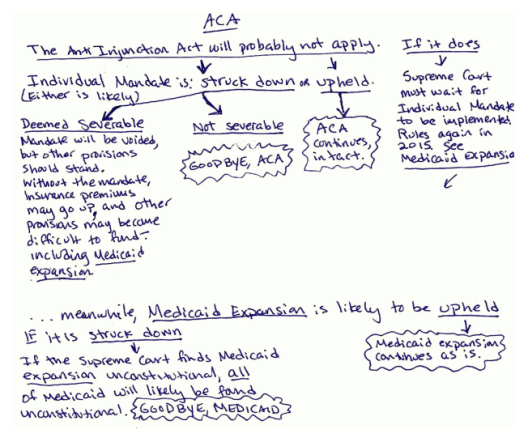 ACA
The Anti Injunction Act will probably not apply.
Individual Mandate is: struck down or upheld.
(Either is likely)
Deemed Severable
Mandate will be voided,
but other provisions
should stand.
Without the mandate,
Insurance premiums
may go up, and other
provisions may become
difficult to fund-
including Medicaid
expansion
Not severable
GOODBYE, ACA
ACA
continues,
intact.
If it does
Supreme Court
must wait for
Individual Mandate
to be implemented
Rules again in
2015. See
Medicaid Expansion
... meanwhile, Medicaid Expansion is likely to be upheld
IF it is struck down
If the Supreme Court finds Medicaid
expansion unconstitutional, all
of Medicaid will likely be found
unconstitutional. GOODBYE, MEDICAID
Medicaid expansion
continues as is.